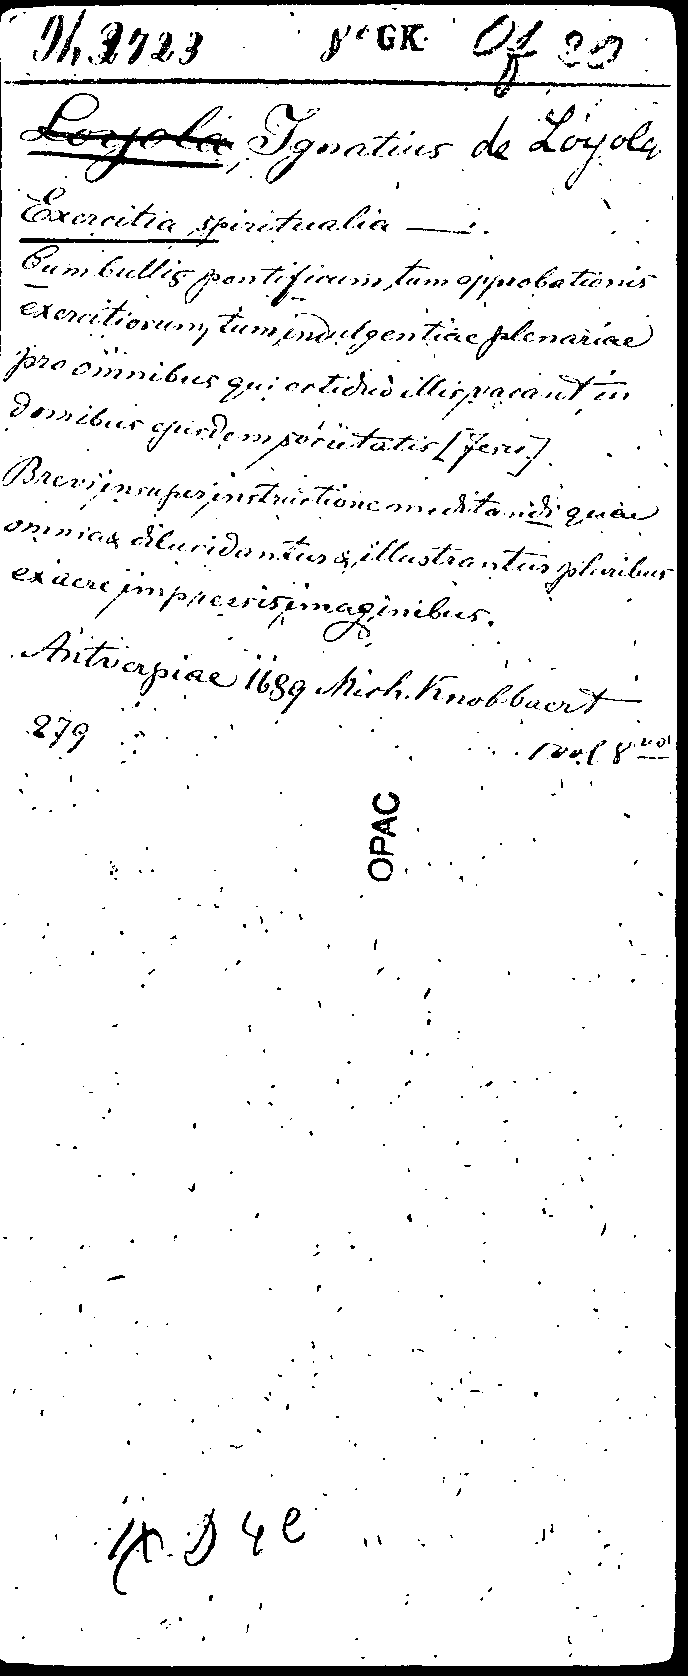 Th 2723 8° GK. Of 20
Loyola, Ignatius de Loyola
Exercitia spiritualia —.
Cum bullis pontificum, tum approbationis
exercitiorum, tum indulgentiae plenariae
pro omnibus qui octiduo illis vacant in
domibus ejusdem societatis [Jesu].
Brevi insuper instructione meditandi quae
omnia & dilucidantur & illustrantur pluribus
ex aere impressis imaginibus.
Antverpiae 1689 Mich. Knobbaert
279 1 vol 8vo
OPAC
D 4 e